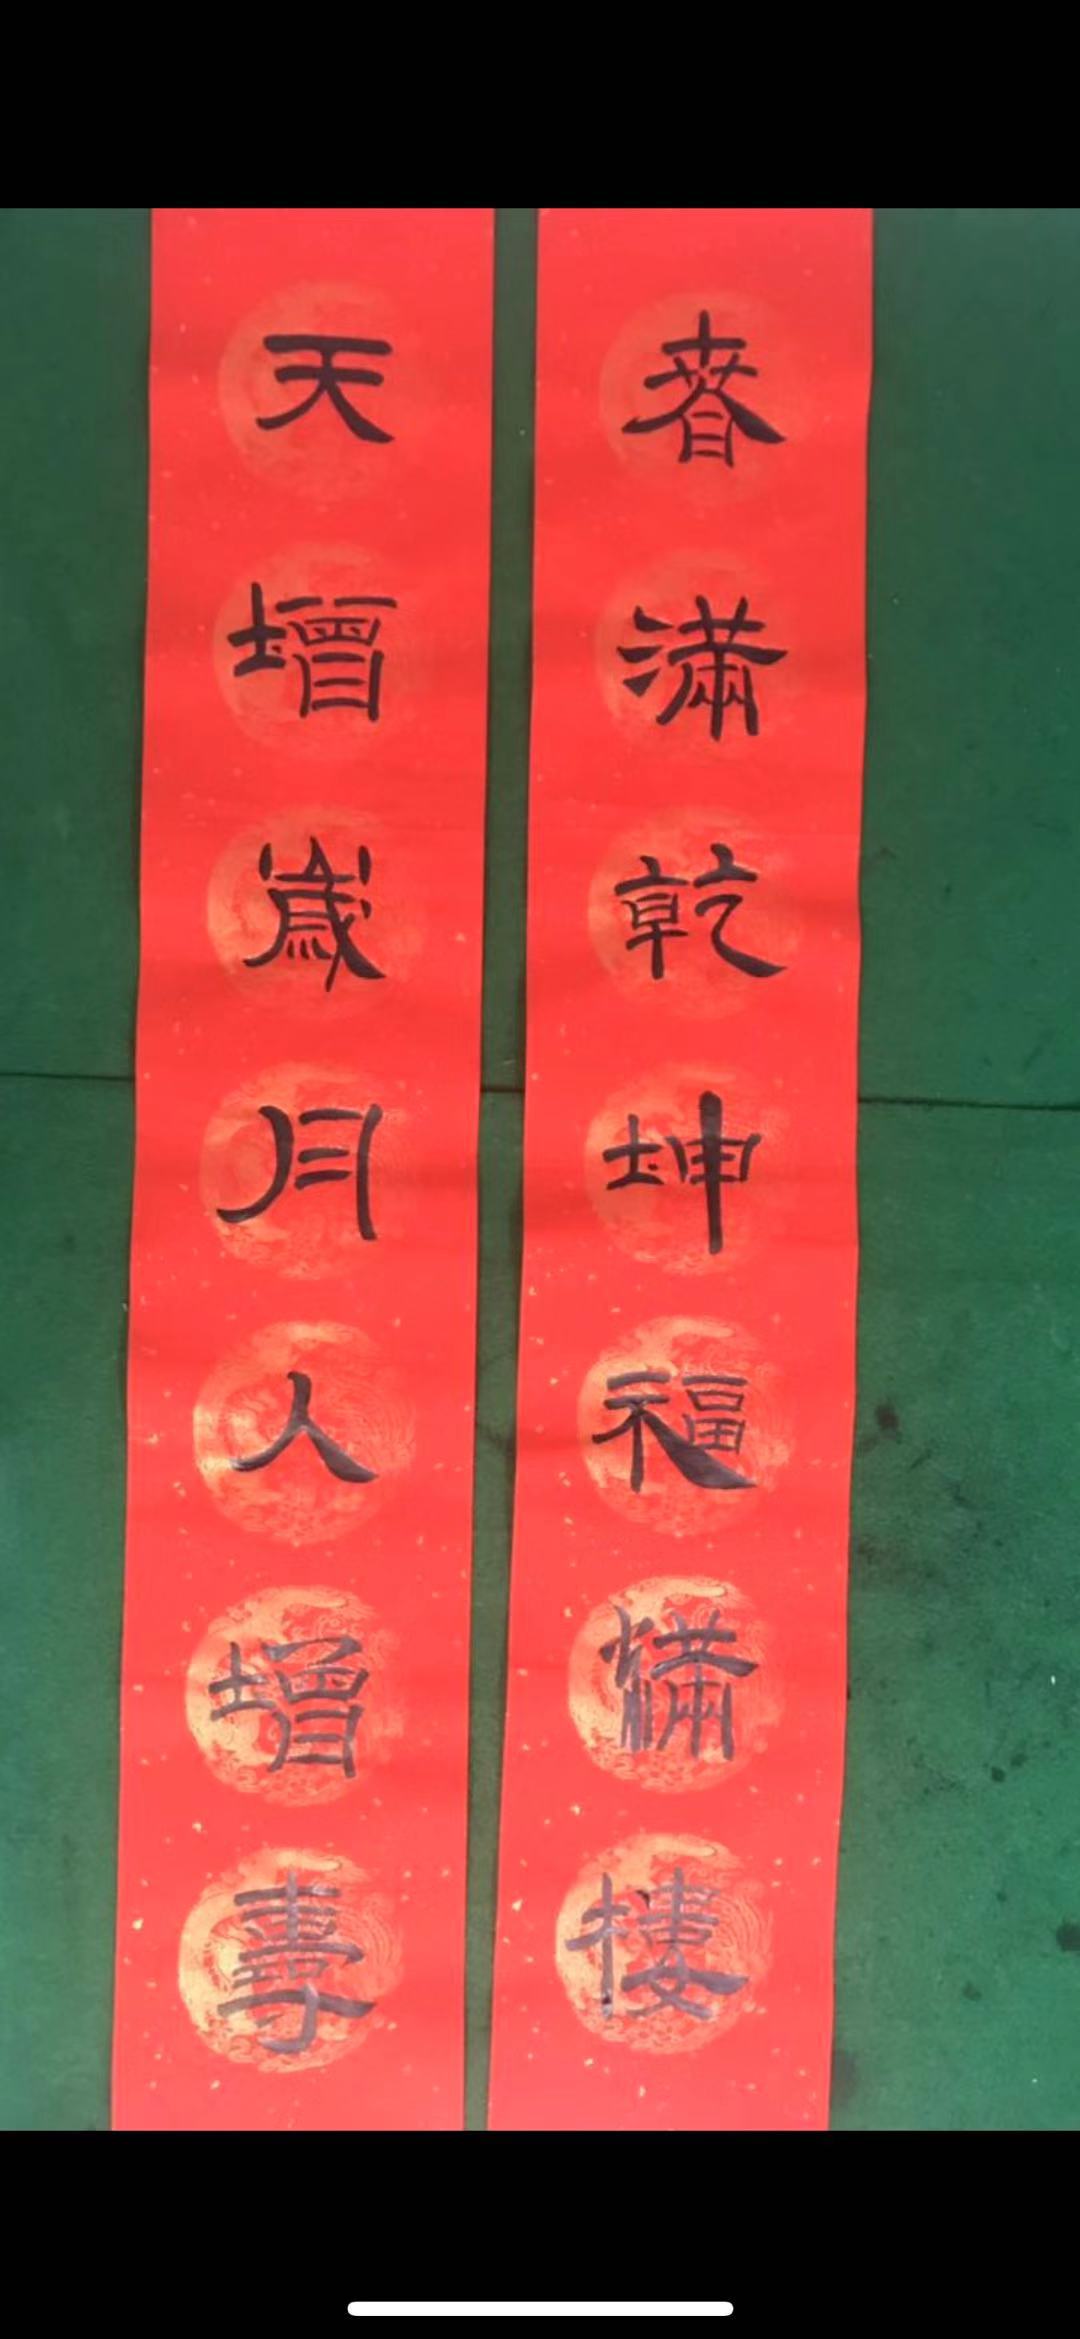 天增歲月人增壽
春滿乾坤福滿樓